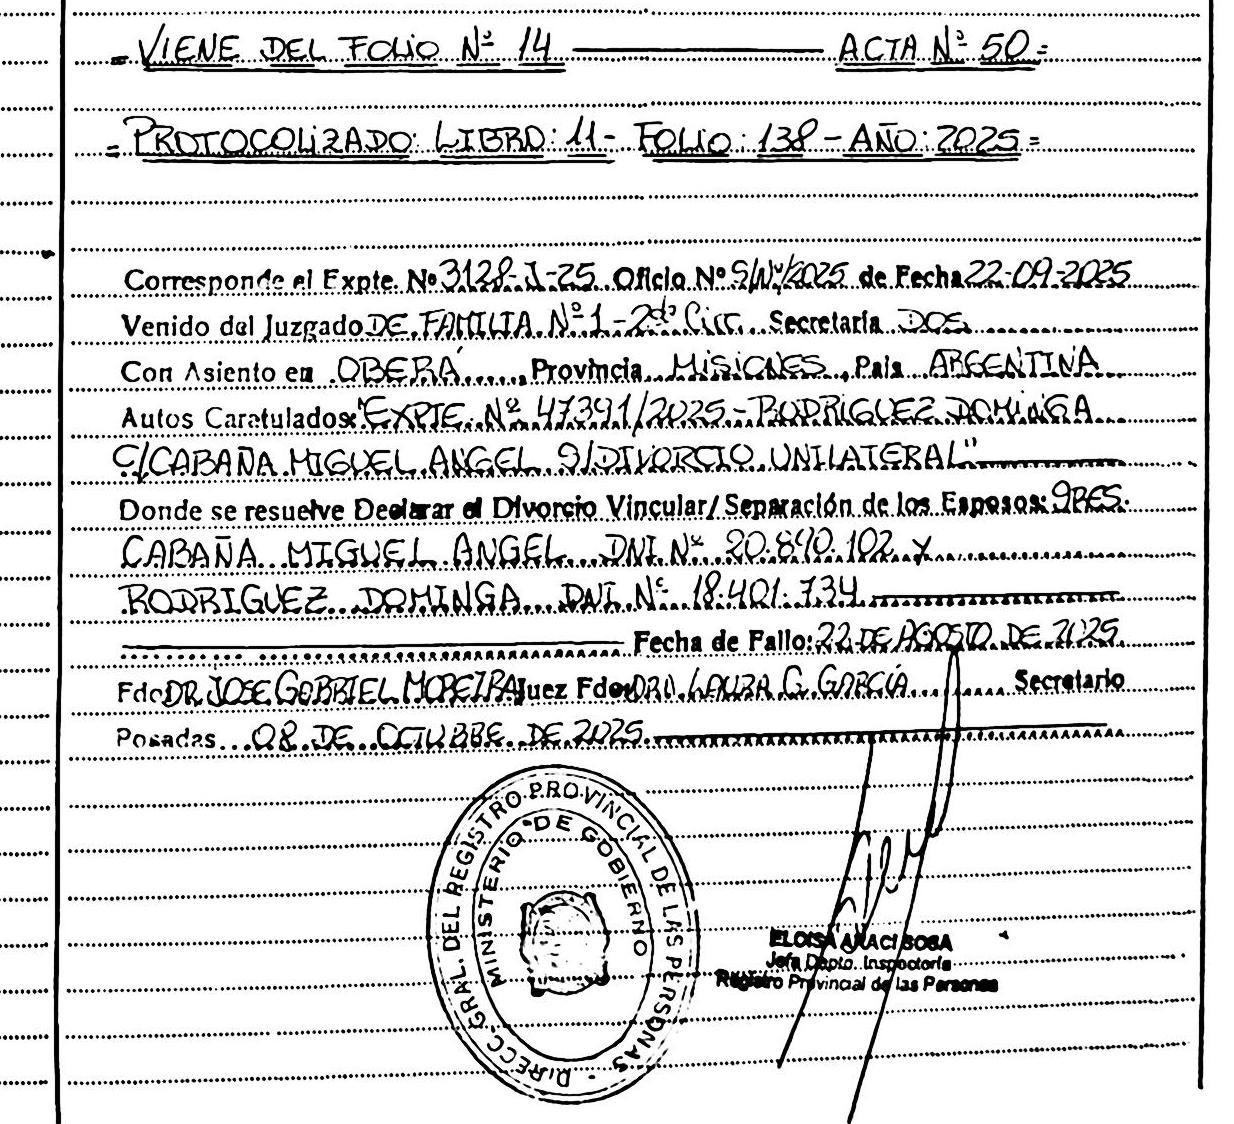 = VIENE DEL FOLIO Nº 14 ——— ACTA Nº 50 =
= PROTOCOLIZADO: LIBRO: 11 - FOLIO: 138 - AÑO: 2025 =
Corresponde el Expte. Nº 3128-J-25 Oficio Nº S/Nº/2025 de Fecha 22-09-2025
Venido del Juzgado DE FAMILIA Nº 1 - 2da Circ. Secretaría DOS
Con Asiento en OBERÁ, Provincia MISIONES, País ARGENTINA
Autos Caratulados: "EXPTE. Nº 47391/2025.- RODRIGUEZ DOMINGA
C/CABAÑA MIGUEL ANGEL S/DIVORCIO UNILATERAL"
Donde se resuelve Declarar el Divorcio Vincular/Separación de los Esposos: SRES.
CABAÑA MIGUEL ANGEL DNI Nº 20.890.102 y
RODRIGUEZ DOMINGA DNI Nº 18.401.734
Fecha de Fallo: 22 DE AGOSTO DE 2025.
Fdo DR. JOSE GABRIEL MOREIRA Juez Fdo DRA. LAURA G. GARCÍA Secretario
Posadas 08 DE OCTUBRE DE 2025.
DIRECC. GRAL. DEL REGISTRO PROVINCIAL DE LAS PERSONAS -
MINISTERIO DE GOBIERNO
ELOISA ARACI SOSA
Jefa Dpto. Inspectoría
Registro Provincial de las Personas